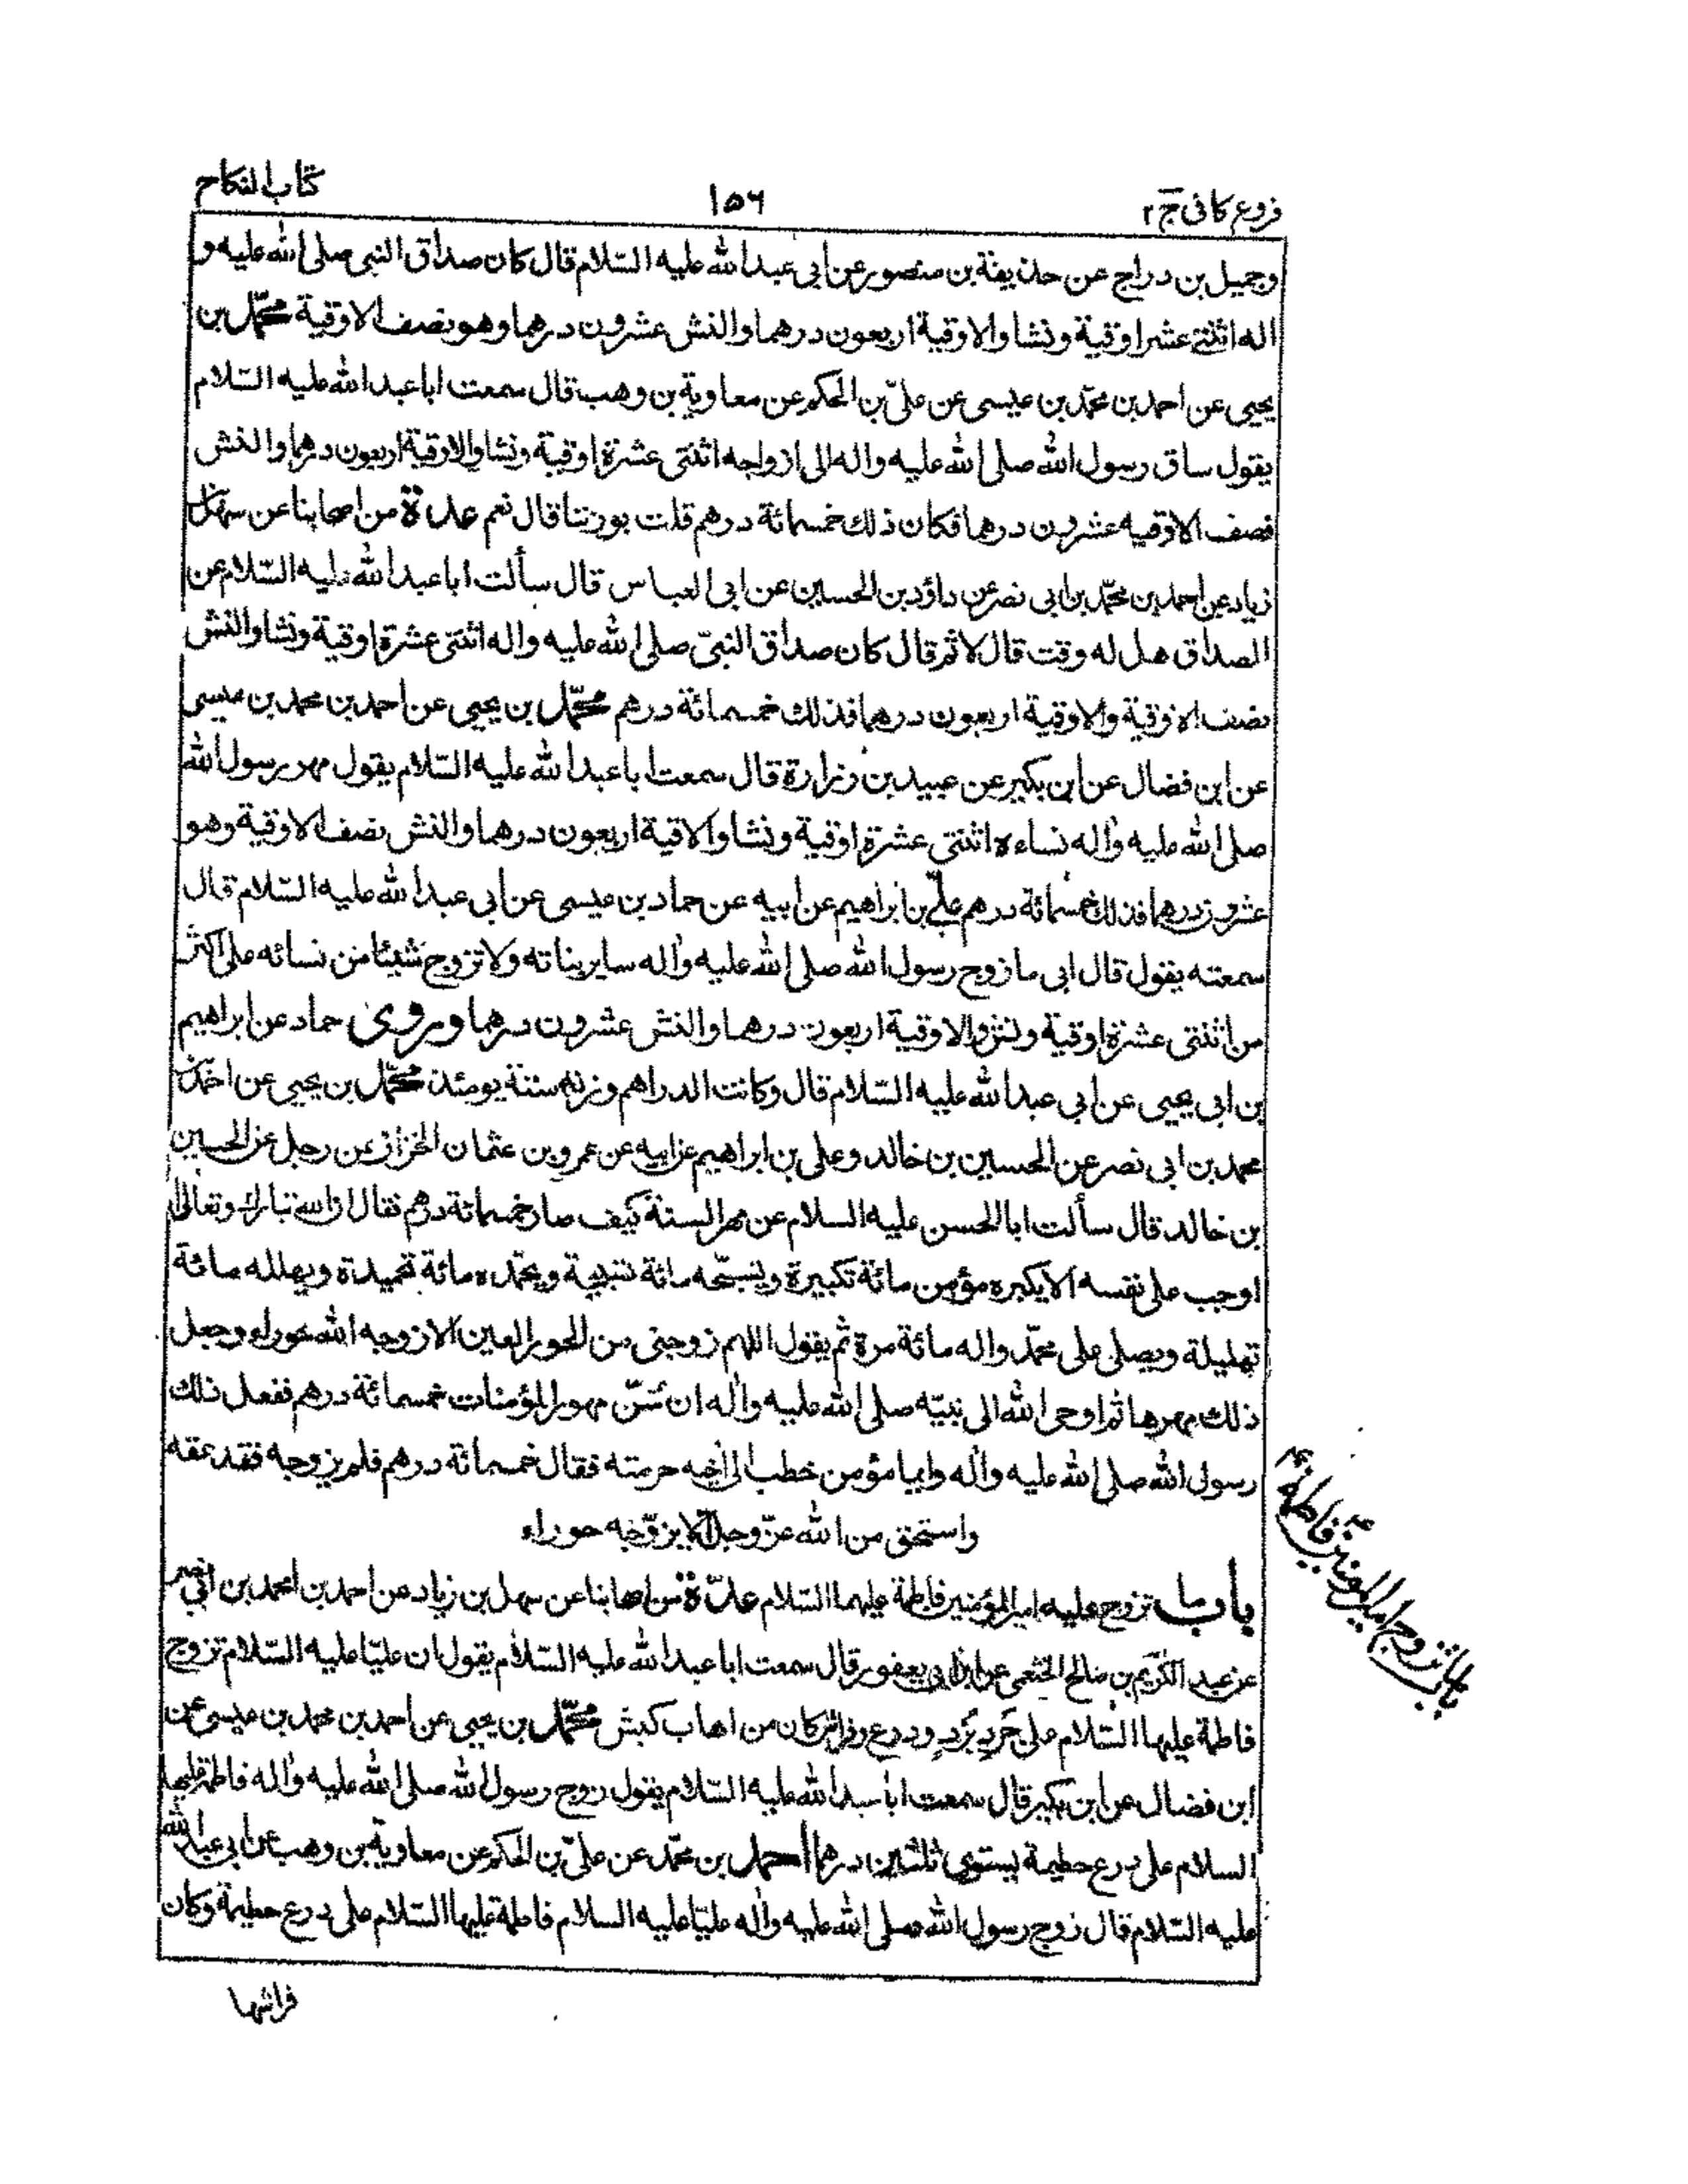 فروع کافی ج ۲
۱۵۶
کتاب النکاح
وجمیل بن دراج عن حذیفة بن منصور عن ابی عبدالله علیه السّلام قال کان صداق النبی صلی الله علیه و
اله اثنتی عشر اوقیة ونشا والاوقیة اربعون درهما والنش عشرون درهما وهو نصف الاوقیة محمّد بن
یحیی عن احمد بن محمّد بن عیسی عن علیّ بن الحکم عن معاویة بن وهب قال سمعت اباعبدالله علیه السّلام
یقول ساق رسول الله صلی الله علیه واله الی ازواجه اثنتی عشرة اوقیة ونشا والاوقیة اربعون درهما والنش
نصف الاوقیه عشرون درهما فکان ذلک خمسمائة درهم قلت بوزننا قال نعم عدة من اصحابنا عن سهل بن
زیاد عن احمد بن محمّد بن ابی نصر عن داؤد بن الحسین عن ابی العباس قال سألت اباعبدالله علیه السّلام عن
الصداق هل له وقت قال لا ثم قال کان صداق النبیّ صلی الله علیه واله اثنتی عشرة اوقیة ونشا والنش
نصف الاوقیة والاوقیة اربعون درهما فذلک خمسمائة درهم محمّد بن یحیی عن احمد بن محمد بن عیسی
عن ابن فضال عن ابن بکیر عن عبید بن زرارة قال سمعت اباعبدالله علیه السّلام یقول مهر رسول الله
صلی الله علیه واٰله نساءه اثنتی عشرة اوقیة ونشا والاقیة اربعون درهما والنش نصف الاوقیة وهو
عشرون درهما فذلک خمسمائة درهم علی بن ابراهیم عن ابیه عن حماد بن عیسی عن ابی عبدالله علیه السّلام قال
سمعته یقول قال ابی ما زوج رسول الله صلی الله علیه واٰله سایر بناته ولا تزوج شیئا من نسائه علی اکثر
من اثنتی عشرة اوقیة ونش والاوقیة اربعون درهما والنش عشرون درهما وروی حماد عن ابراهیم
بن ابی یحیی عن ابی عبدالله علیه السّلام قال وکانت الدراهم وزن ستة یومئذ محمّد بن یحیی عن احمد بن
محمد بن ابی نصر عن الحسین بن خالد وعلی بن ابراهیم عن ابیه عن عمرو بن عثمان الخزاز عن رجل عن الحسین
بن خالد قال سألت ابا الحسن علیه السلام عن مهر السنة کیف صار خمسمائة درهم فقال ان الله تبارک وتعالی
اوجب علی نفسه الا یکبره مؤمن مائة تکبیرة ویسبّحه مائة تسبیحة ویحمّده مائة تحمیدة ویهلله مائة
تهلیلة ویصلی علی محمّد واله مائة مرة ثم یقول اللهم زوجنی من الحور العین الا زوجه الله حوراء وجعل
ذلک مهرها ثم اوحی الله الی نبیّه صلی الله علیه واٰله ان سُنّ مهور المؤمنات خمسمائة درهم ففعل ذلک
رسول الله صلی الله علیه واٰله وایما مؤمن خطب الی اخیه حرمته فقال خمسمائة درهم فلم یزوجه فقد عقه
واستحق من الله عزّ وجلّ الا یزوّجه حوراء
باب ما تزوج علیه امیر المؤمنین فاطمة علیهما السّلام عدّة من اصحابنا عن سهل بن زیاد عن احمد بن محمد بن ابی نصر
عن عبد الکریم بن صالح الخثعمی عن ابن ابی یعفور قال سمعت اباعبدالله علیه السّلام یقول ان علیّا علیه السّلام تزوج
فاطمة علیها السّلام علی جَردِ بُرْدٍ ودرع وفراش کان من اهاب کبش محمّد بن یحیی عن احمد بن محمد بن عیسی عن
ابن فضال عن ابن بکیر قال سمعت اباعبدالله علیه السّلام یقول زوج رسول الله صلی الله علیه واٰله فاطمة علیها
السلام علی درع حطیمة یستوی ثلثین درهما احمد بن محمّد عن علیّ بن الحکم عن معاویة بن وهب عن ابی عبدالله
علیه السّلام قال زوج رسول الله صلی الله علیه واٰله علیّا علیه السلام فاطمة علیها السّلام علی درع حطیمة وکان
فراشها
باب ما تزوج امیر المومنین فاطمة